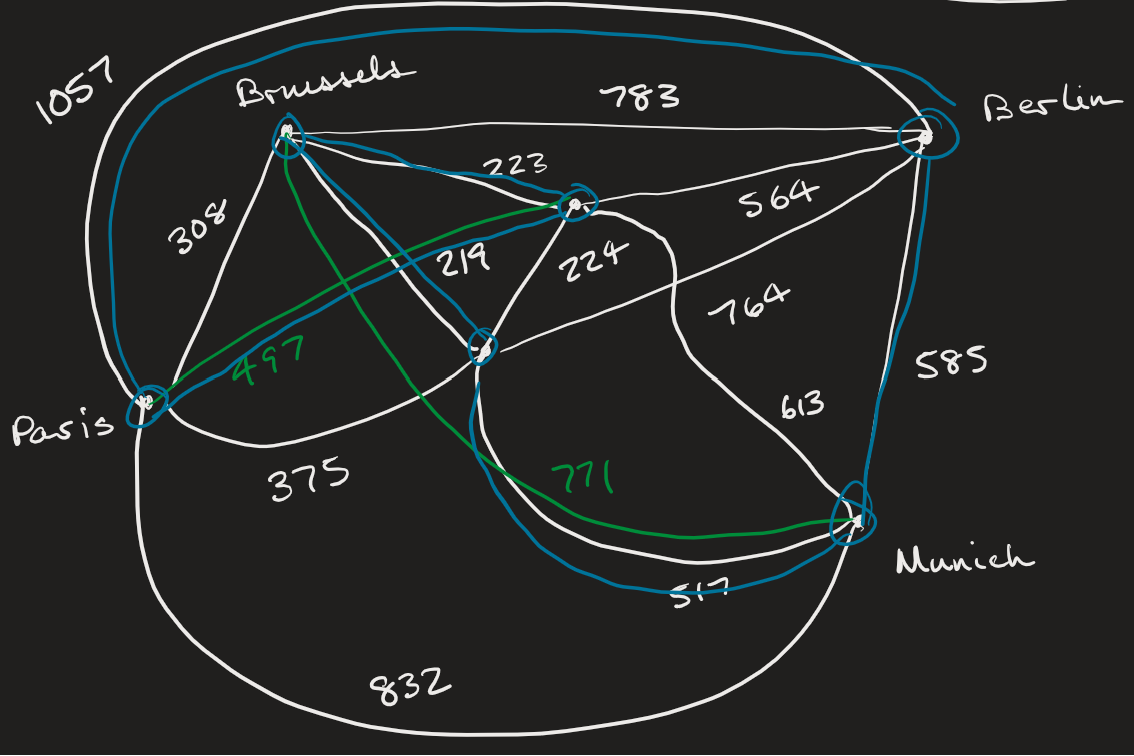 1057
Brussels
783
Berlin
223
564
308
219
224
764
497
585
Paris
613
375
771
Munich
517
832